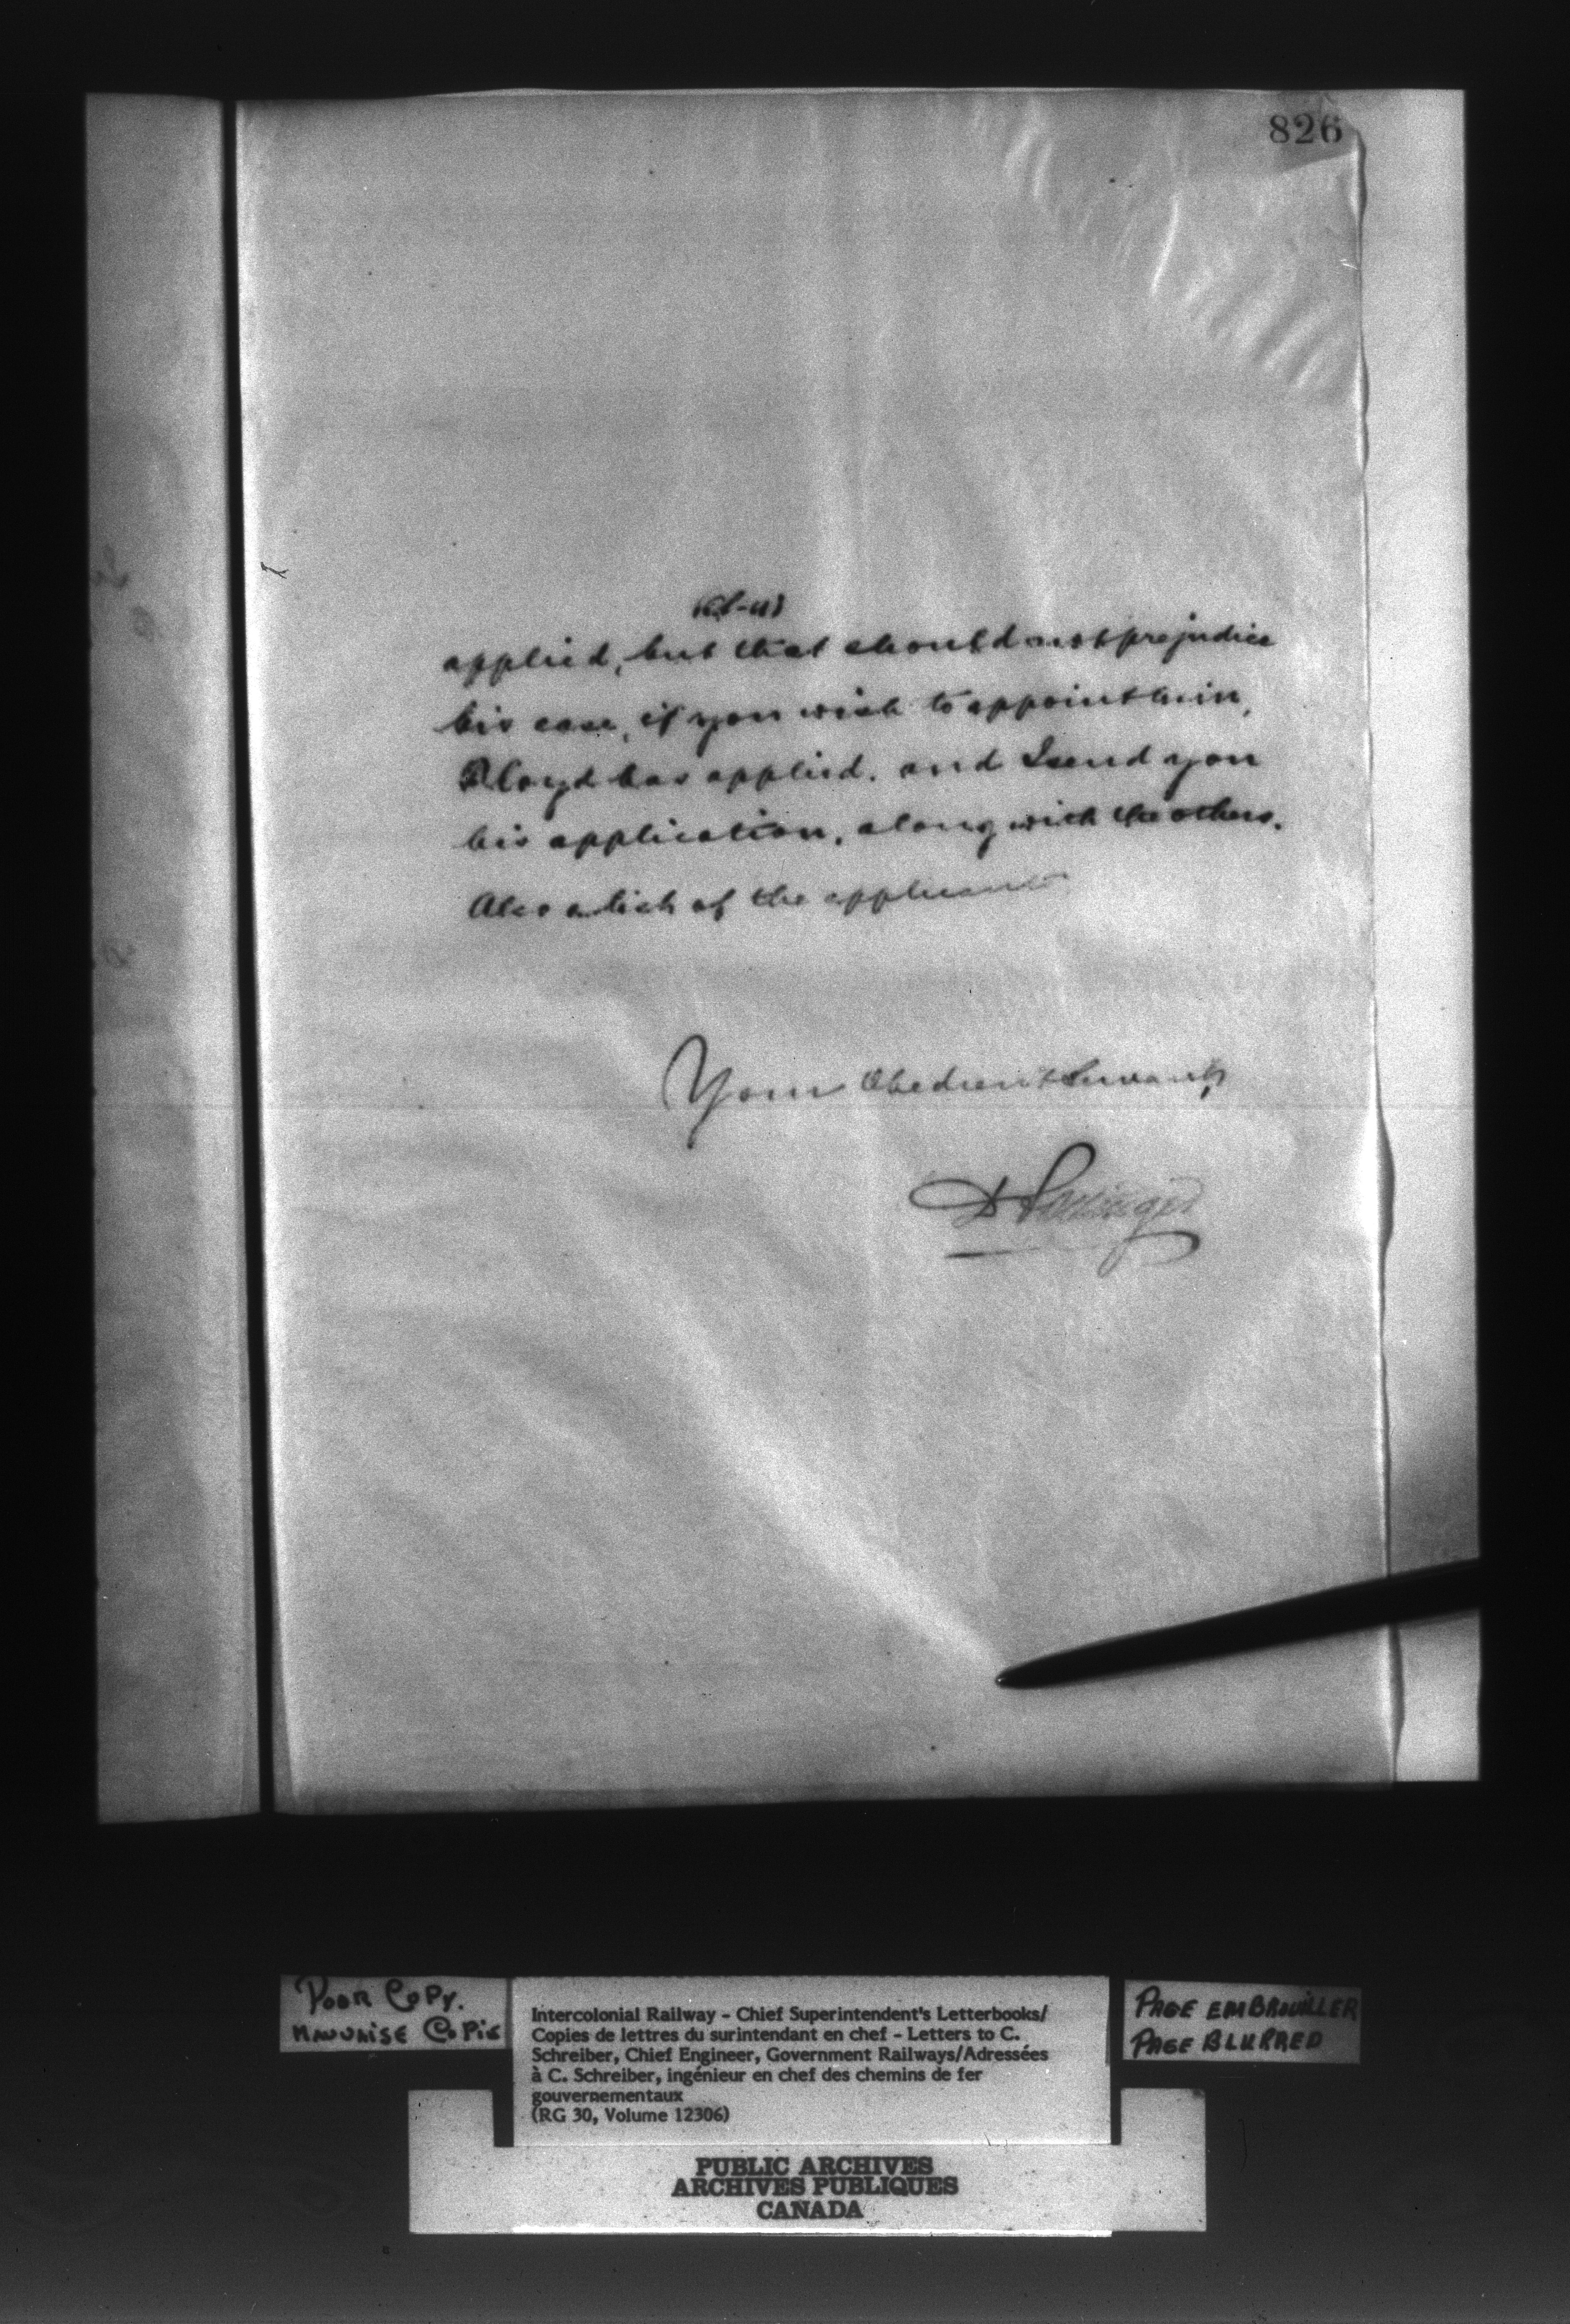 826
applied, but that should not prejudice
his case, if you wish to appoint him,
Lloyd has applied, and I send you
his application, along with the others.
Also a list of the applicants
Your Obedient Servant,
D Pottinger
POOR COPY.
MAUVAISE COPIE
Intercolonial Railway - Chief Superintendent's Letterbooks/
Copies de lettres du surintendant en chef - Letters to C.
Schreiber, Chief Engineer, Government Railways/Adressées
à C. Schreiber, ingénieur en chef des chemins de fer
gouvernementaux
(RG 30, Volume 12306)
PAGE EMBROUILLER
PAGE BLURRED
PUBLIC ARCHIVES
ARCHIVES PUBLIQUES
CANADA